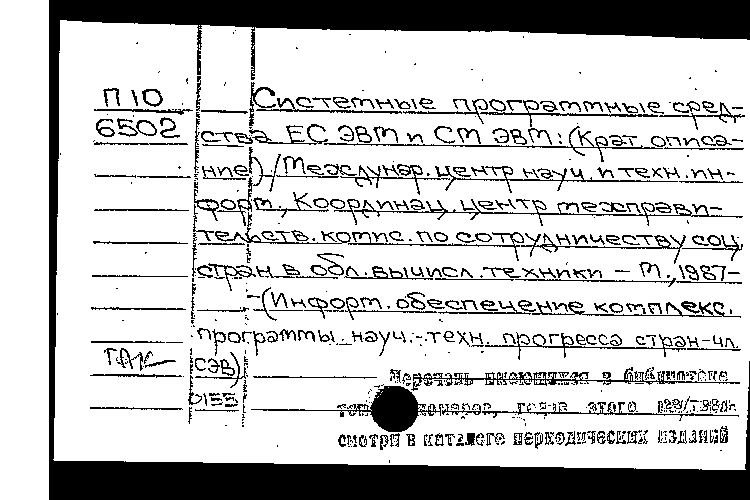 П10 Системные программные сред-
6502 ства ЕС ЭВМ и СМ ЭВМ: (Крат. описа-
ние) / Междунар. центр науч. и техн. ин-
форм., Координац. центр межправи-
тельств. комис. по сотрудничеству соц.
стран в обл. вычисл. техники – М., 1987-
-(Информ. обеспечение комплекс.
программы науч.-техн. прогресса стран-чл.
СЭВ)
Перечень имеющихся в библиотеке
номеров, годов этого
смотри в каталоге периодических изданий